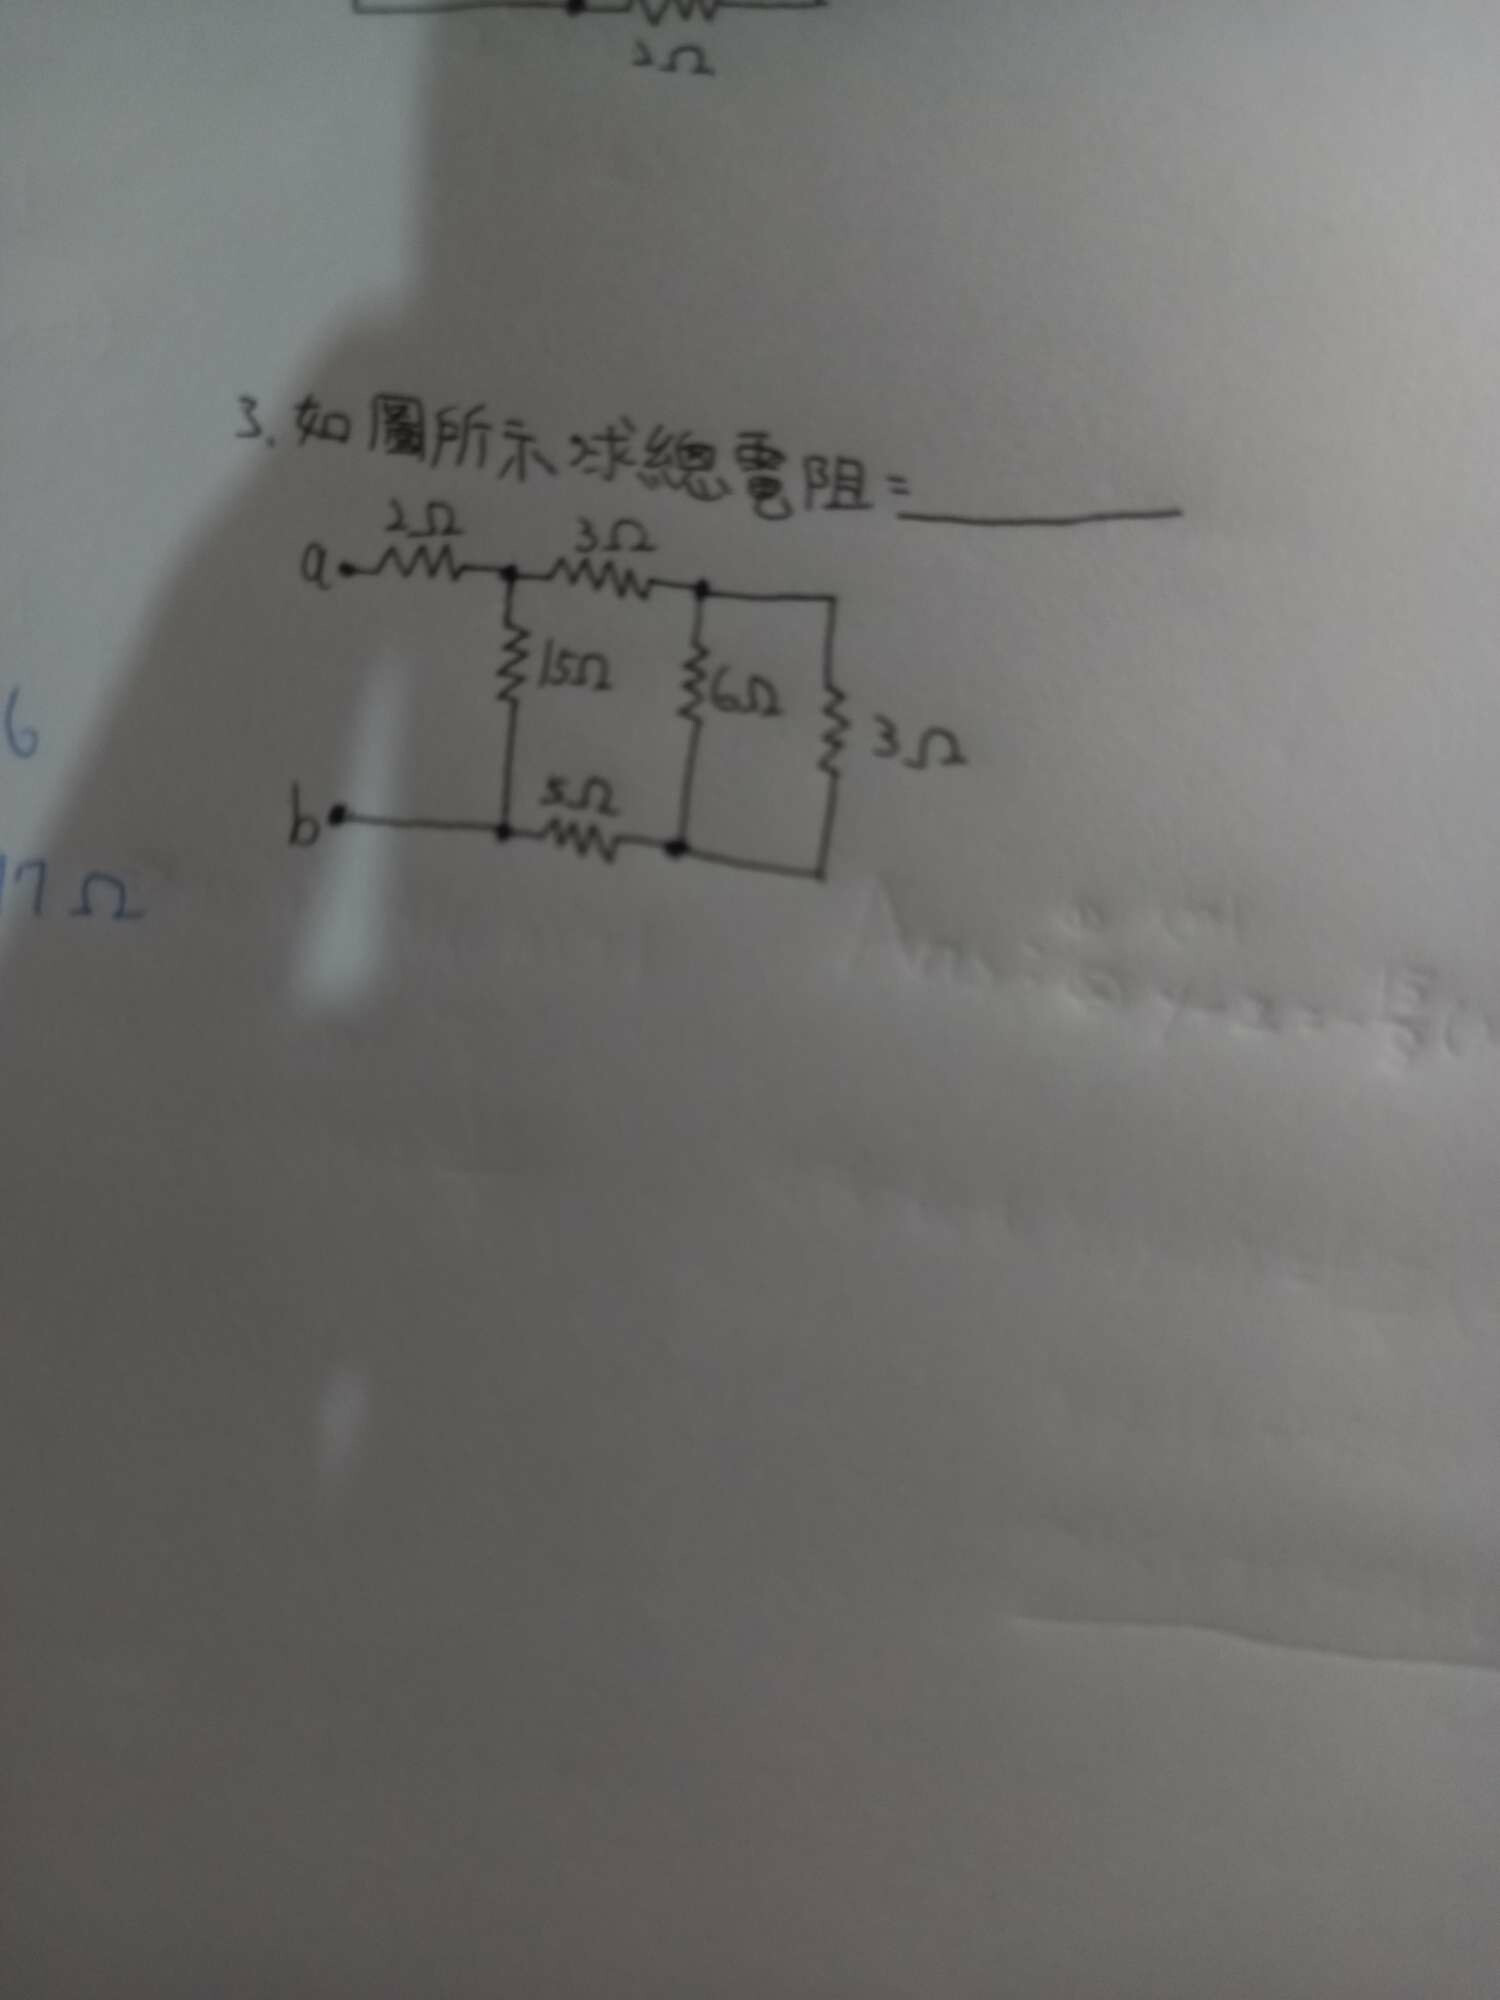 2Ω
3.如圖所示求總電阻=
2Ω
3Ω
a
15Ω
6Ω
3Ω
5Ω
b
6
17Ω